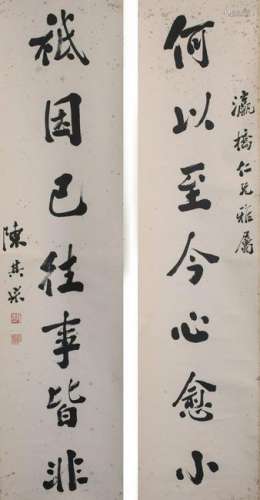 瀛橋仁兄雅屬
何以至今心愈小
祇因已往事皆非
陳其采